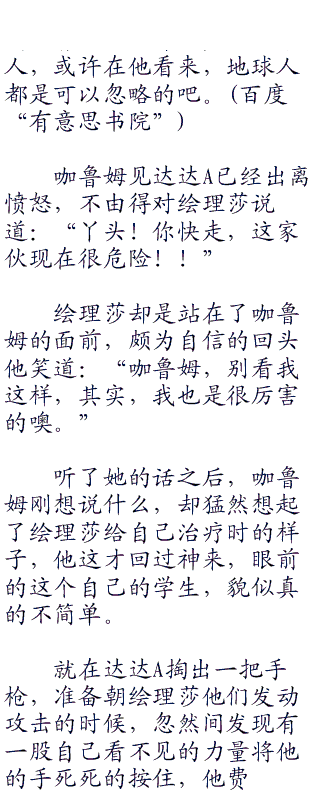 人，或许在他看来，地球人
都是可以忽略的吧。(百度
“有意思书院”)
咖鲁姆见达达A已经出离
愤怒，不由得对绘理莎说
道：“丫头！你快走，这家
伙现在很危险！！”
绘理莎却是站在了咖鲁
姆的面前，颇为自信的回头
他笑道：“咖鲁姆，别看我
这样，其实，我也是很厉害
的噢。”
听了她的话之后，咖鲁
姆刚想说什么，却猛然想起
了绘理莎给自己治疗时的样
子，他这才回过神来，眼前
的这个自己的学生，貌似真
的不简单。
就在达达A掏出一把手
枪，准备朝绘理莎他们发动
攻击的时候，忽然间发现有
一股自己看不见的力量将他
的手死死的按住，他费